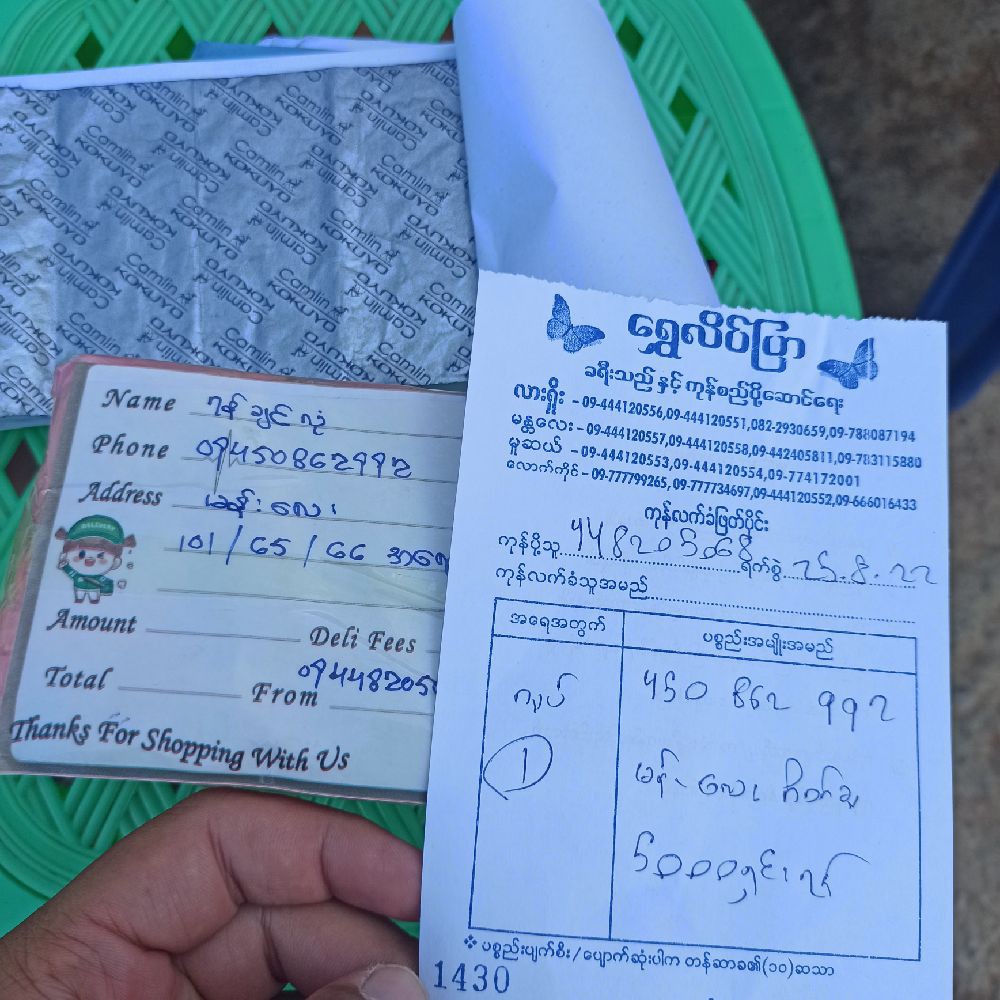 Camlin
KOKUYO
Name ဂျန် ချင် လုံ
Phone 09450862992
Address မန္း လေး
101 / 65 / 66
Amount
Deli Fees
Total
From 094482050
Thanks For Shopping With Us
ရွှေလိပ်ပြာ
ခရီးသည် နှင့် ကုန်စည်ပို့ဆောင်ရေး
လားရှိုး - 09-444120556,09-444120551,082-2930659,09-788087194
မန္တလေး - 09-444120557,09-444120558,09-442405811,09-783115880
မူဆယ် - 09-444120553,09-444120554,09-774172001
လောက်ကိုင် - 09-777799265,09-777734697,09-444120552,09-666016433
ကုန်လက်ခံဖြတ်ပိုင်း
ကုန်ပို့သူ 448205068 ရက်စွဲ 25.8.22
ကုန်လက်ခံသူအမည်
အရေအတွက်
ပစ္စည်းအမျိုးအမည်
ကပ်
1
450 862 992
မန်းလေး ဂိတ်ချ
5000 ရှင်းရန်
❖ ပစ္စည်းပျက်စီး/ပျောက်ဆုံးပါက တန်ဆာခ၏(၁၀)ဆသာ
1430